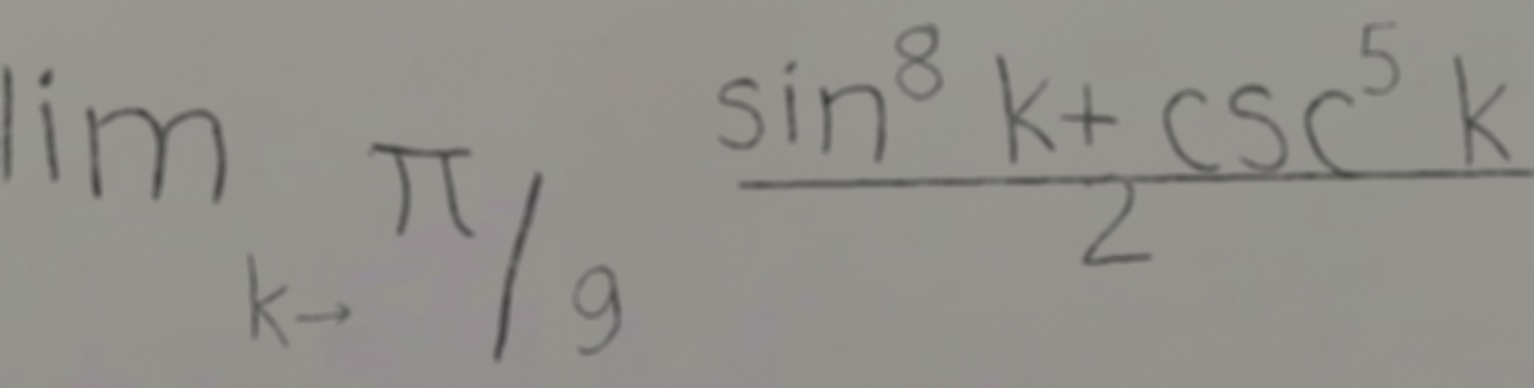 \lim_{k \to \pi/9} \frac{\sin^8 k + \csc^5 k}{2}